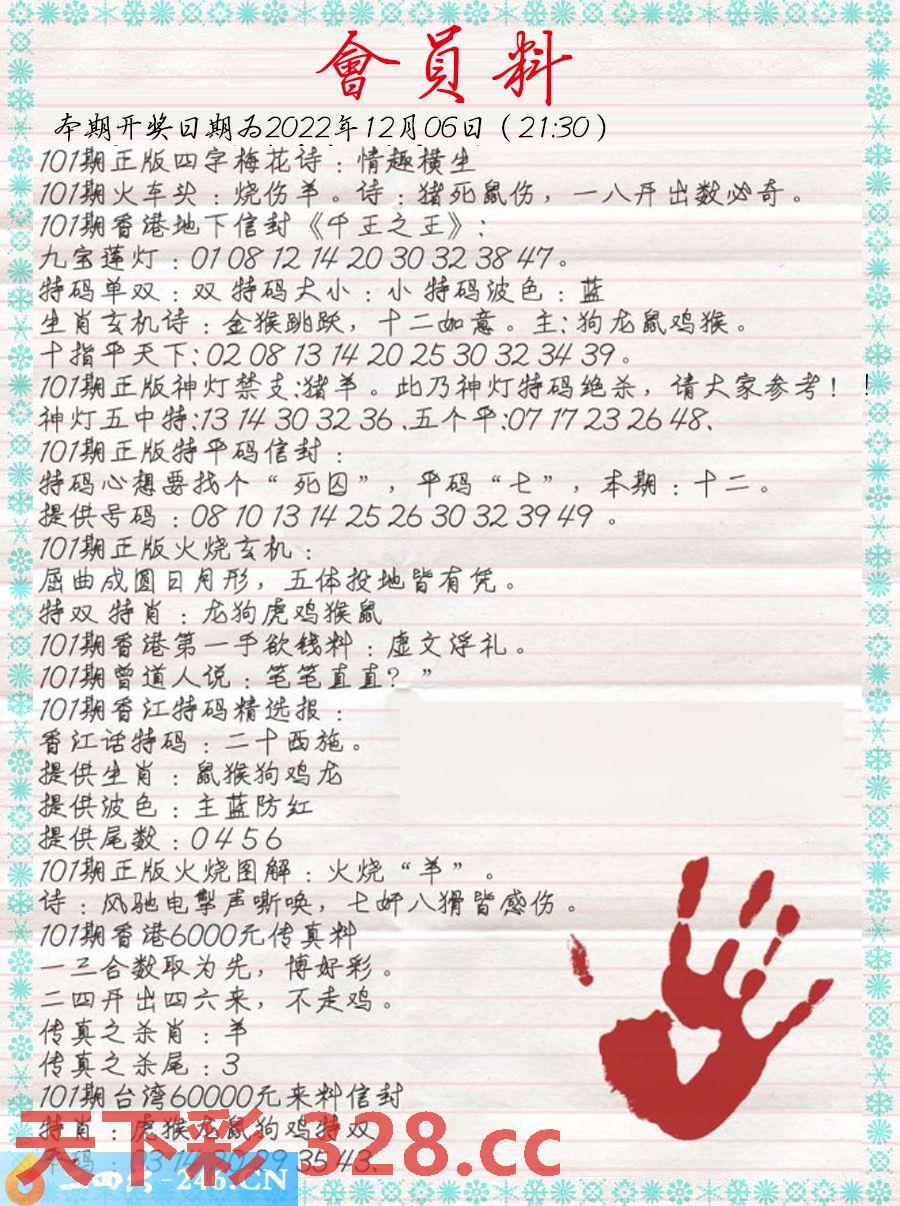 會員料
本期开奖日期为2022年12月06日（21:30）
101期正版四字梅花诗：情趣横生
101期火车头：烧伤羊。诗：猪死鼠伤，一八开出数必奇。
101期香港地下信封《千王之王》：
九宝莲灯：01 08 12 14 20 30 32 38 47。
特码单双：双 特码大小：小 特码波色：蓝
生肖玄机诗：金猴跳跃，十二如意。主：狗龙鼠鸡猴。
十指平天下:02 08 13 14 20 25 30 32 34 39。
101期正版神灯禁支:猪羊。此乃神灯特码绝杀，请大家参考！！
神灯五中特:13 14 30 32 36 .五个平:07 17 23 26 48、
101期正版特平码信封：
特码心想要找个“ 死囚”，平码“七”，本期：十二。
提供号码：08 10 13 14 25 26 30 32 39 49 。
101期正版火烧玄机：
屈曲成圆日月形，五体投地皆有凭。
特双 特肖：龙狗虎鸡猴鼠
101期香港第一手欲钱料：虚文浮礼。
101期曾道人说：笔笔直直？”
101期香江特码精选报：
香江话特码：二十西施。
提供生肖：鼠猴狗鸡龙
提供波色：主蓝防红
提供尾数：0 4 5 6
101期正版火烧图解：火烧“羊”。
诗：风驰电掣声嘶唤，七奸八猾皆感伤。
101期香港6000元传真料
一三合数取为先，博好彩。
二四开出四六来，不走鸡。
传真之杀肖：羊
传真之杀尾：3
101期台湾60000元来料信封
特肖：虎猴龙鼠狗鸡特双
天下彩 328.cc
平码：03 14 30 39 35 43、
-246.CN